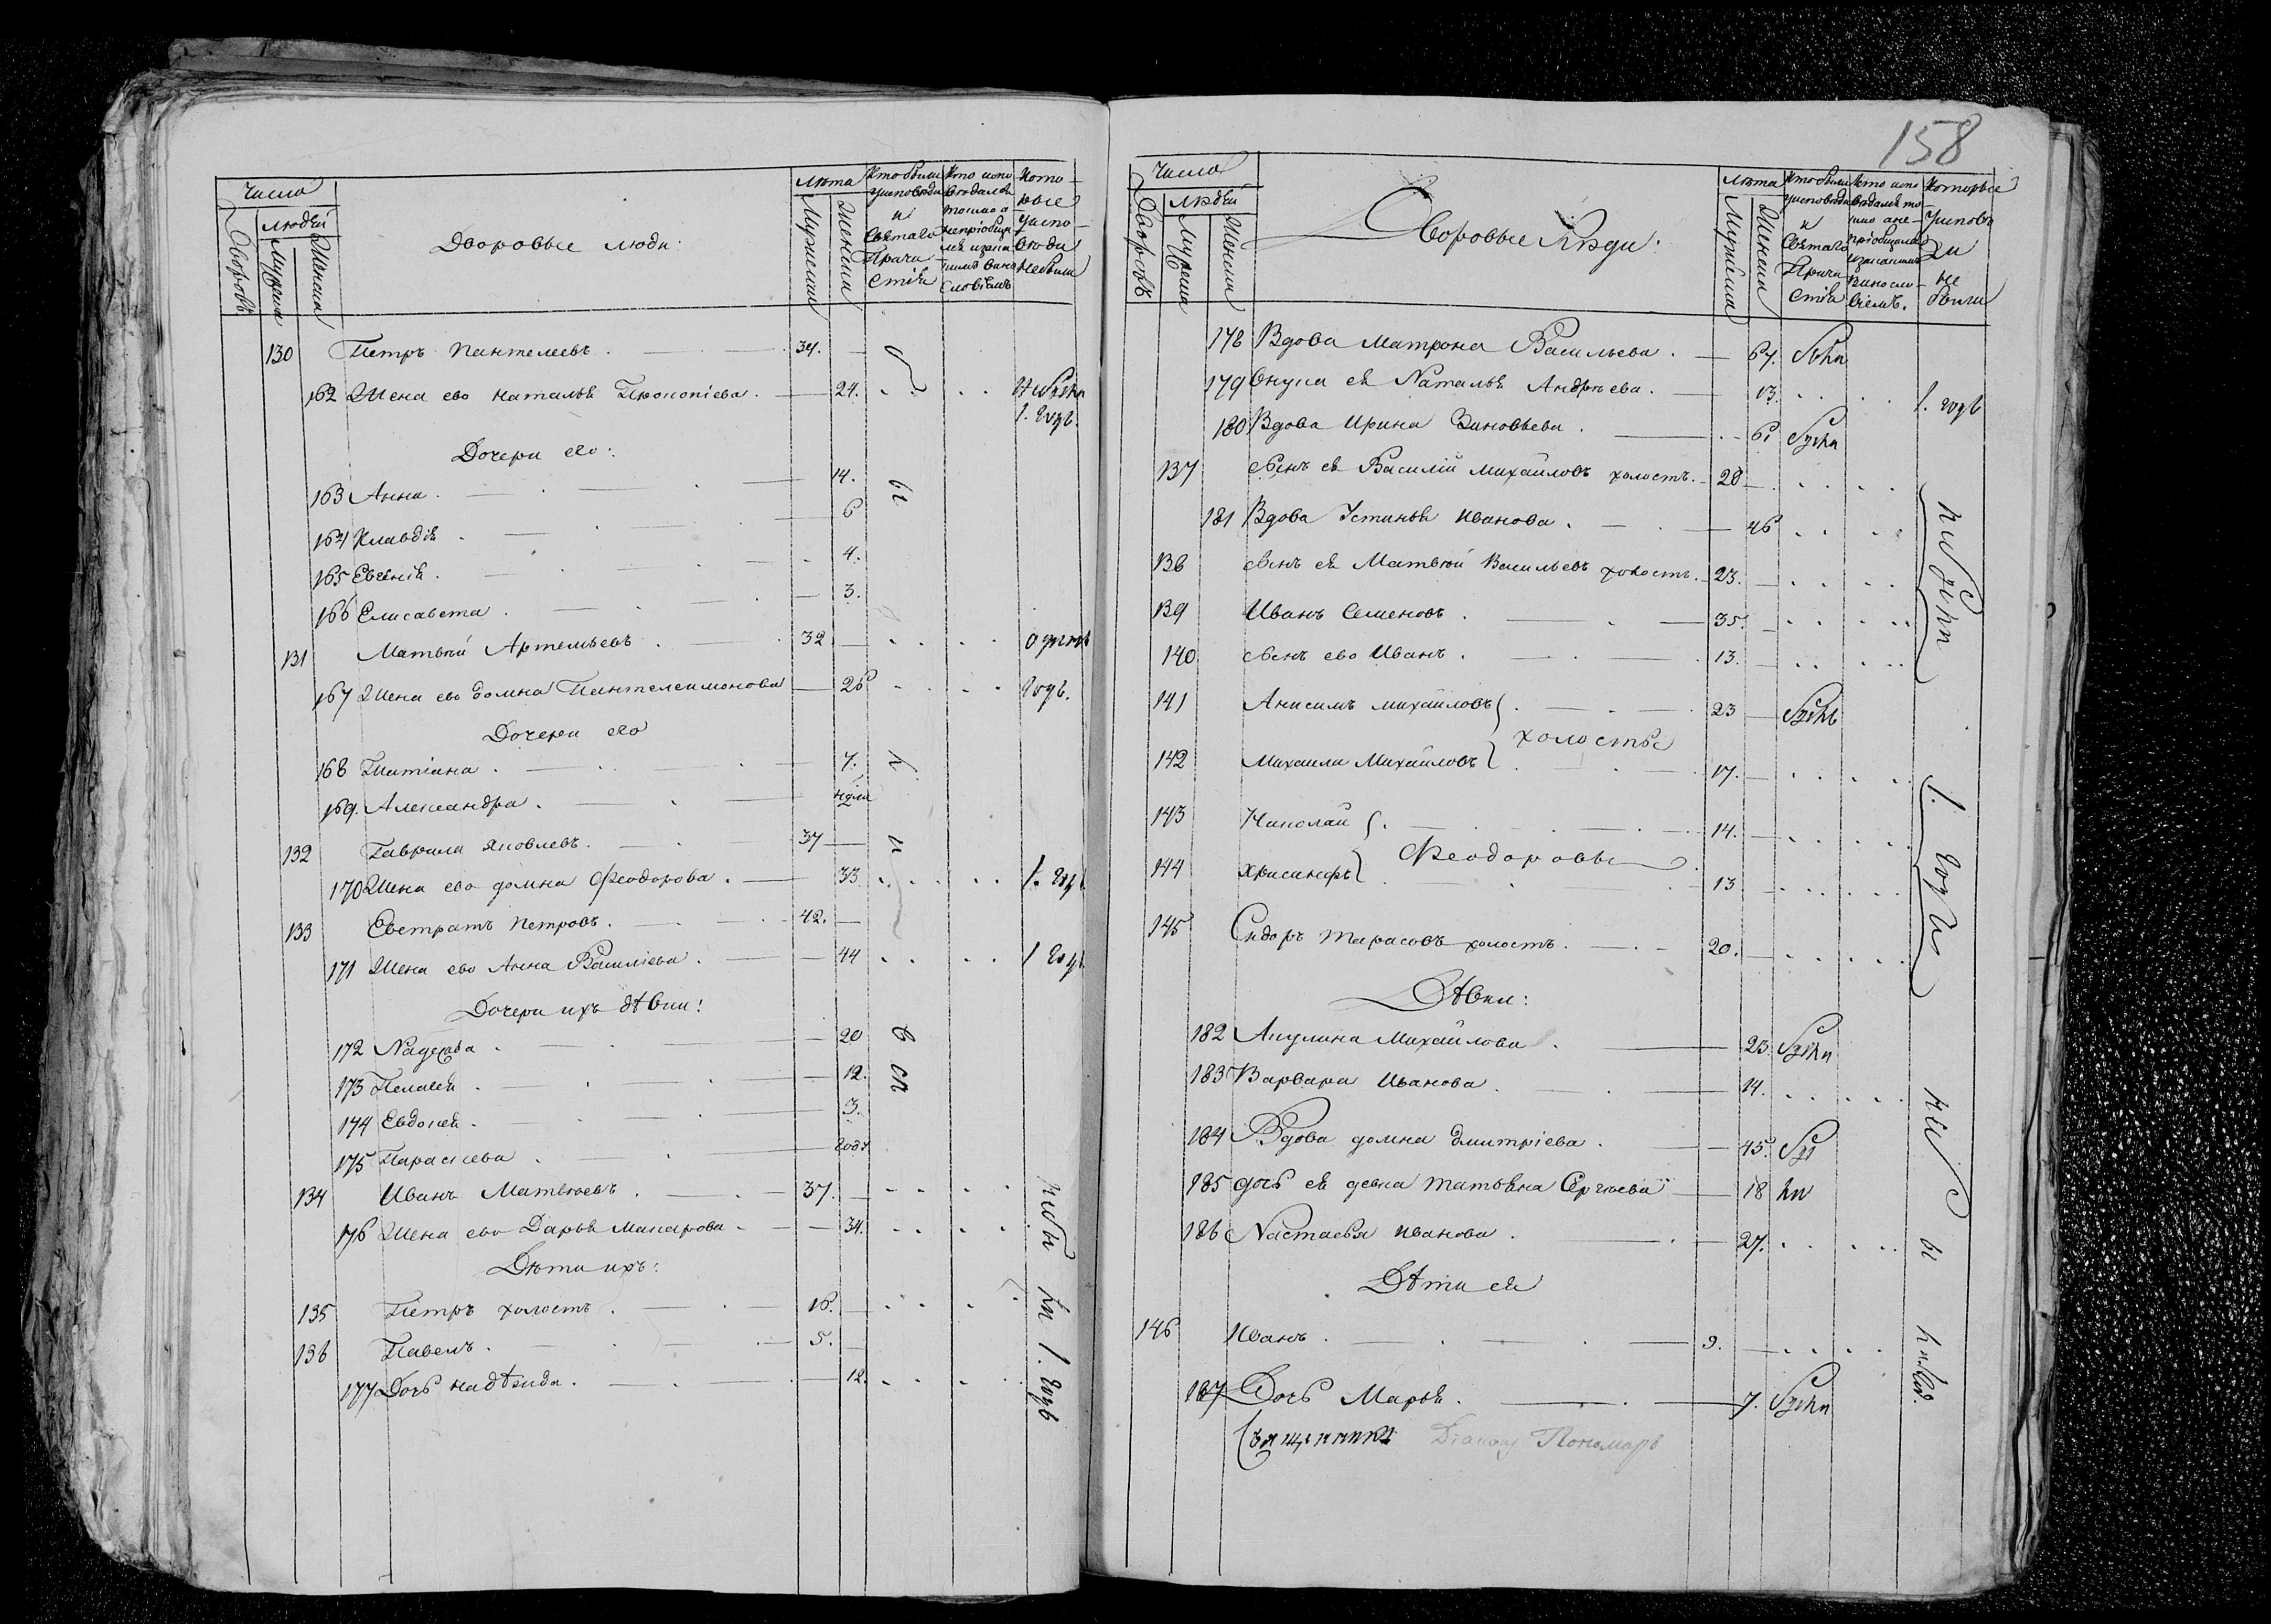 Число
Людей
Дворовъ
Мужска
Женска
Дворовые люди:
Лѣта
Мужескія
Женскія
Кто были у исповѣди и Святаго Причастія
Которые у исповѣди не были
130 Петръ Пантелеевъ. 34.
162 Жена ево Наталья Прокопіева. 24.
1. годъ.
Дочери его:
163 Анна. 14.
164 Клавдія. 6
165 Евгенія. 4.
166 Елисавета. 3.
131 Матвѣй Артемьевъ. 32
167 Жена ево Домна Пантелеимонова 26 годъ.
Дочери его
168 Татіана. 7.
169. Александра.
132 Гаврила Яковлевъ. 37
170 Жена ево Домна Феодорова. 33 1. годъ
133 Евстратъ Петровъ. 42.
171 Жена ево Анна Василіева. 44 1 годъ
Дочери ихъ дѣвки:
172 Надежда 20
173 Пелагея. 12.
174 Евдокея. 3.
175 Параскева. годъ
134 Иванъ Матвѣевъ. 37.
176 Жена ево Дарья Макарова 34.
Дѣти ихъ:
135 Петръ холостъ. 16.
136 Павелъ. 5.
177 Дочь Надѣжда. 12.
1. годъ
158
Число
Людей
Дворовъ
Мужска
Женска
Дворовые Люди:
Лѣта
Мужеска
Женска
Кто были у исповѣди и Святаго Причастія
Которые у исповѣди не были
178 Вдова Матрона Васильева. 67.
179 Внука ея Наталья Андрѣева. 13. 1. годъ
180 Вдова Ирина Зиновьева. 61
137 Сынъ ея Василій Михайловъ холостъ. 28
181 Вдова Устинья Иванова. 46
138 Сынъ ея Матвѣй Васильевъ холостъ. 23.
139 Иванъ Семеновъ. 35.
140 Сынъ ево Иванъ. 13.
141 Анисимъ Михайловъ 23
холостые
142 Михаила Михайловъ 17.
143 Николай 14.
Феодоровы
144 Хрисанфъ 13
145 Сидоръ Тарасовъ холостъ. 20.
1. года
Дѣвки:
182 Акулина Михайлова. 23
183 Варвара Иванова. 14.
184 Вдова Домна Дмитріева. 45.
185 дочь ея девка Татьяна Сергѣева 18
186 Настасья Иванова. 27.
Дѣти ея
146 Иванъ. 9.
187 Дочь Марья. 7.
Священникъ Діаконъ Пономарь